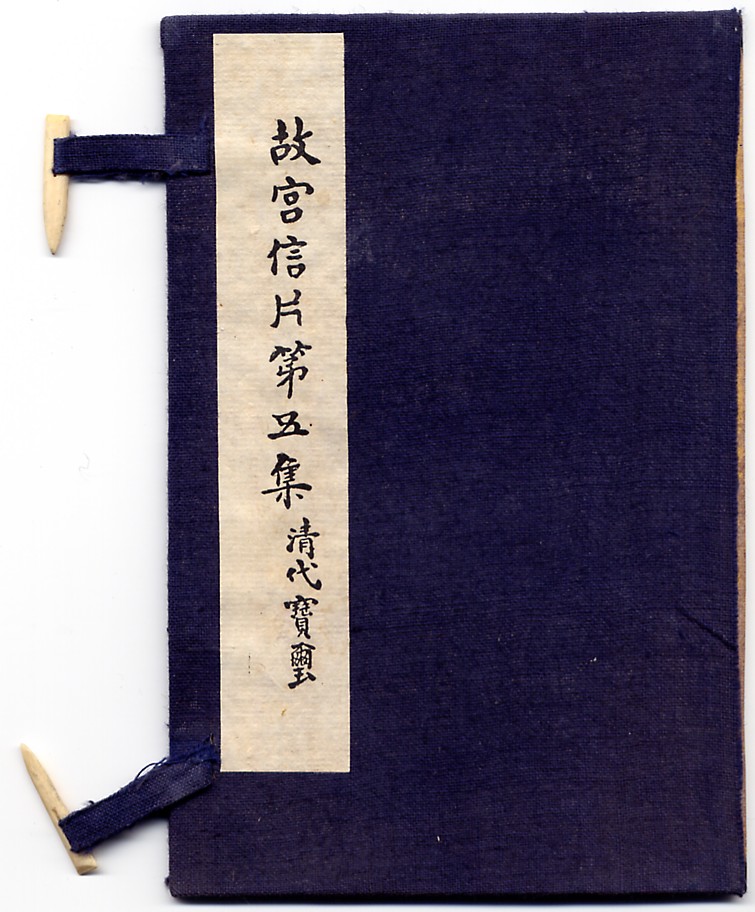 故宮信片第五集
清代寶璽